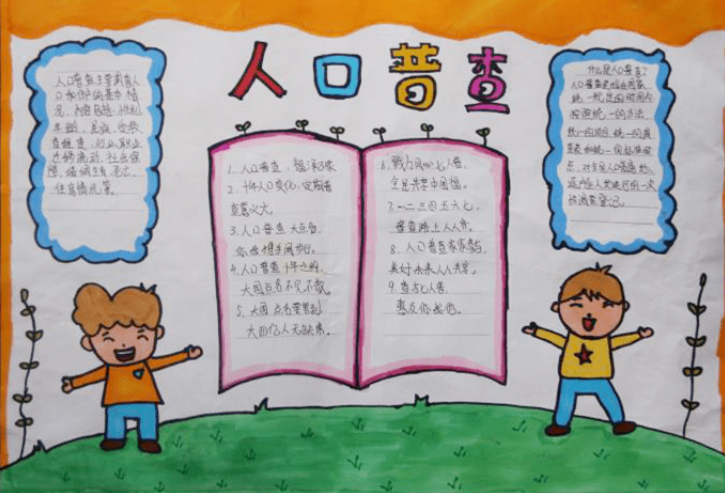 人口普查
人口普查主要调查人
口和住户的基本情
况，内容包括：性别、
年龄、民族、受教
育程度、行业、职业、
迁移流动、社会保
障、婚姻生育、死亡、
住房情况等。
1、人口普查，
2、十年人口变化，
查意义大。
3、人口普查大点名，
4、人口普查十年
大国点名不
5、大国点名
大四亿人
6、
全民共享中国福。
7、一二三四五六七，
普查路上人人齐。
8、人口普查家家
美好未来人人共享。
9、查
惠及你我他。
什么是人口普查？
人口普查是指在国家
统一规定的时间内
按照统一的方法、
统一的项目、统一的调
查表和统一的标准时
点，对全国人口
地逐户逐人地进行的一次
性调查登记。